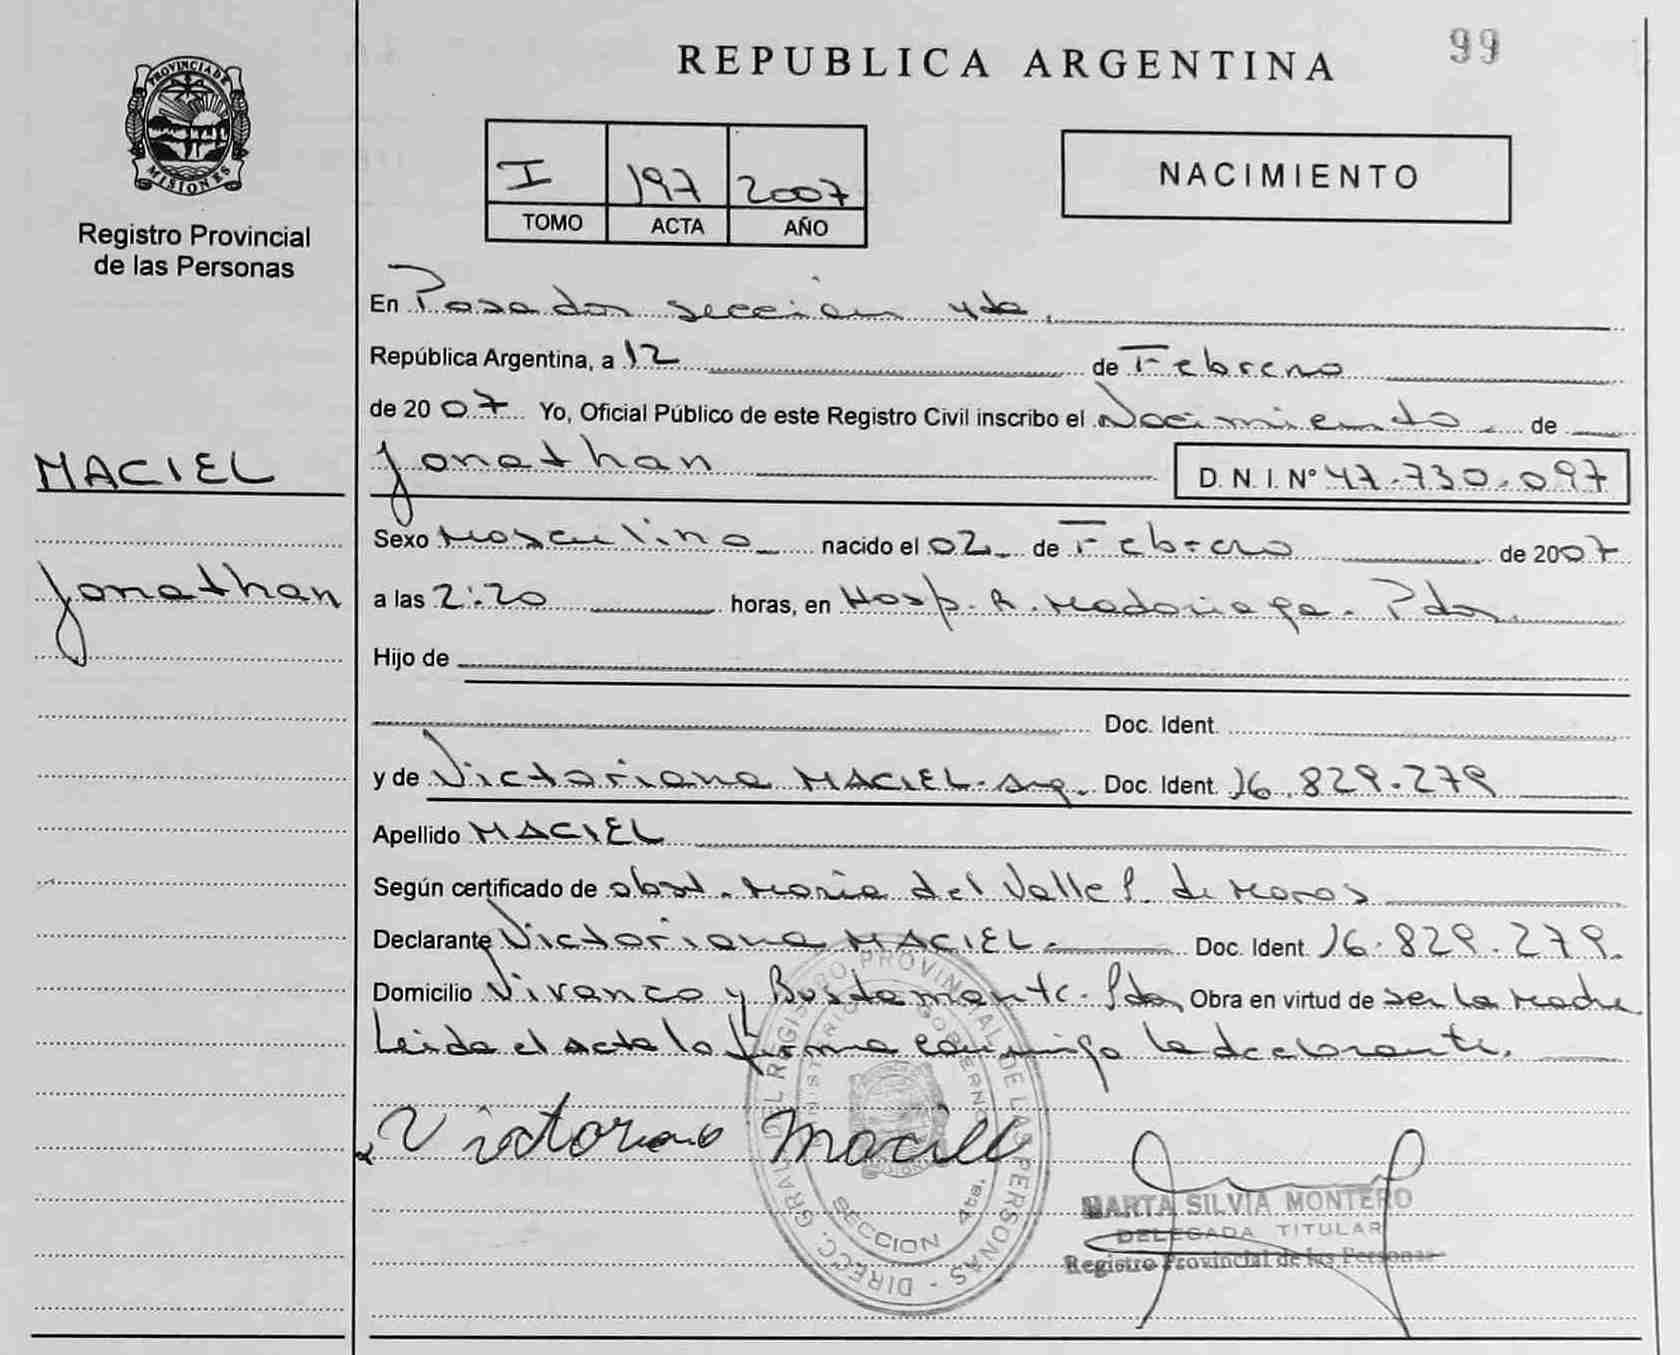 REPUBLICA ARGENTINA
99
PROVINCIA DE MISIONES
Registro Provincial
de las Personas
I 197 2007
TOMO ACTA AÑO
NACIMIENTO
En Posadas sección 4ta.
República Argentina, a 12 de Febrero
de 2007 Yo, Oficial Público de este Registro Civil inscribo el Nacimiento de
MACIEL
Jonathan
Jonathan D. N. I. Nº 47.730.097
Sexo Masculino nacido el 02 de Febrero de 2007
a las 2:20 horas, en Hosp. R. Madariaga. Pdas.
Hijo de
Doc. Ident.
y de Victoriana MACIEL. arg. Doc. Ident. 16.829.279
Apellido MACIEL
Según certificado de obst. María del Valle P. de
Declarante Victoriana MACIEL. Doc. Ident. 16.829.279.
Domicilio Vivanco y Bustamante. Pdas, Obra en virtud de ser la madre
Leida el acta la firma conmigo la declarante.
Victoriana Maciel
DIRECC. GRAL. DEL REGISTRO PROVINCIAL DE LAS PERSONAS
MINISTERIO GOBIERNO
SECCION 4ta.
MARTA SILVIA MONTERO
DELEGADA TITULAR
Registro Provincial de las Personas